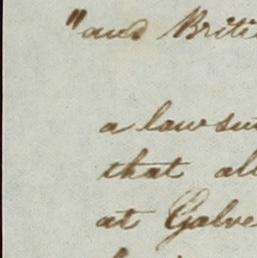 "and Briti
a lawsu
that al
at Galve